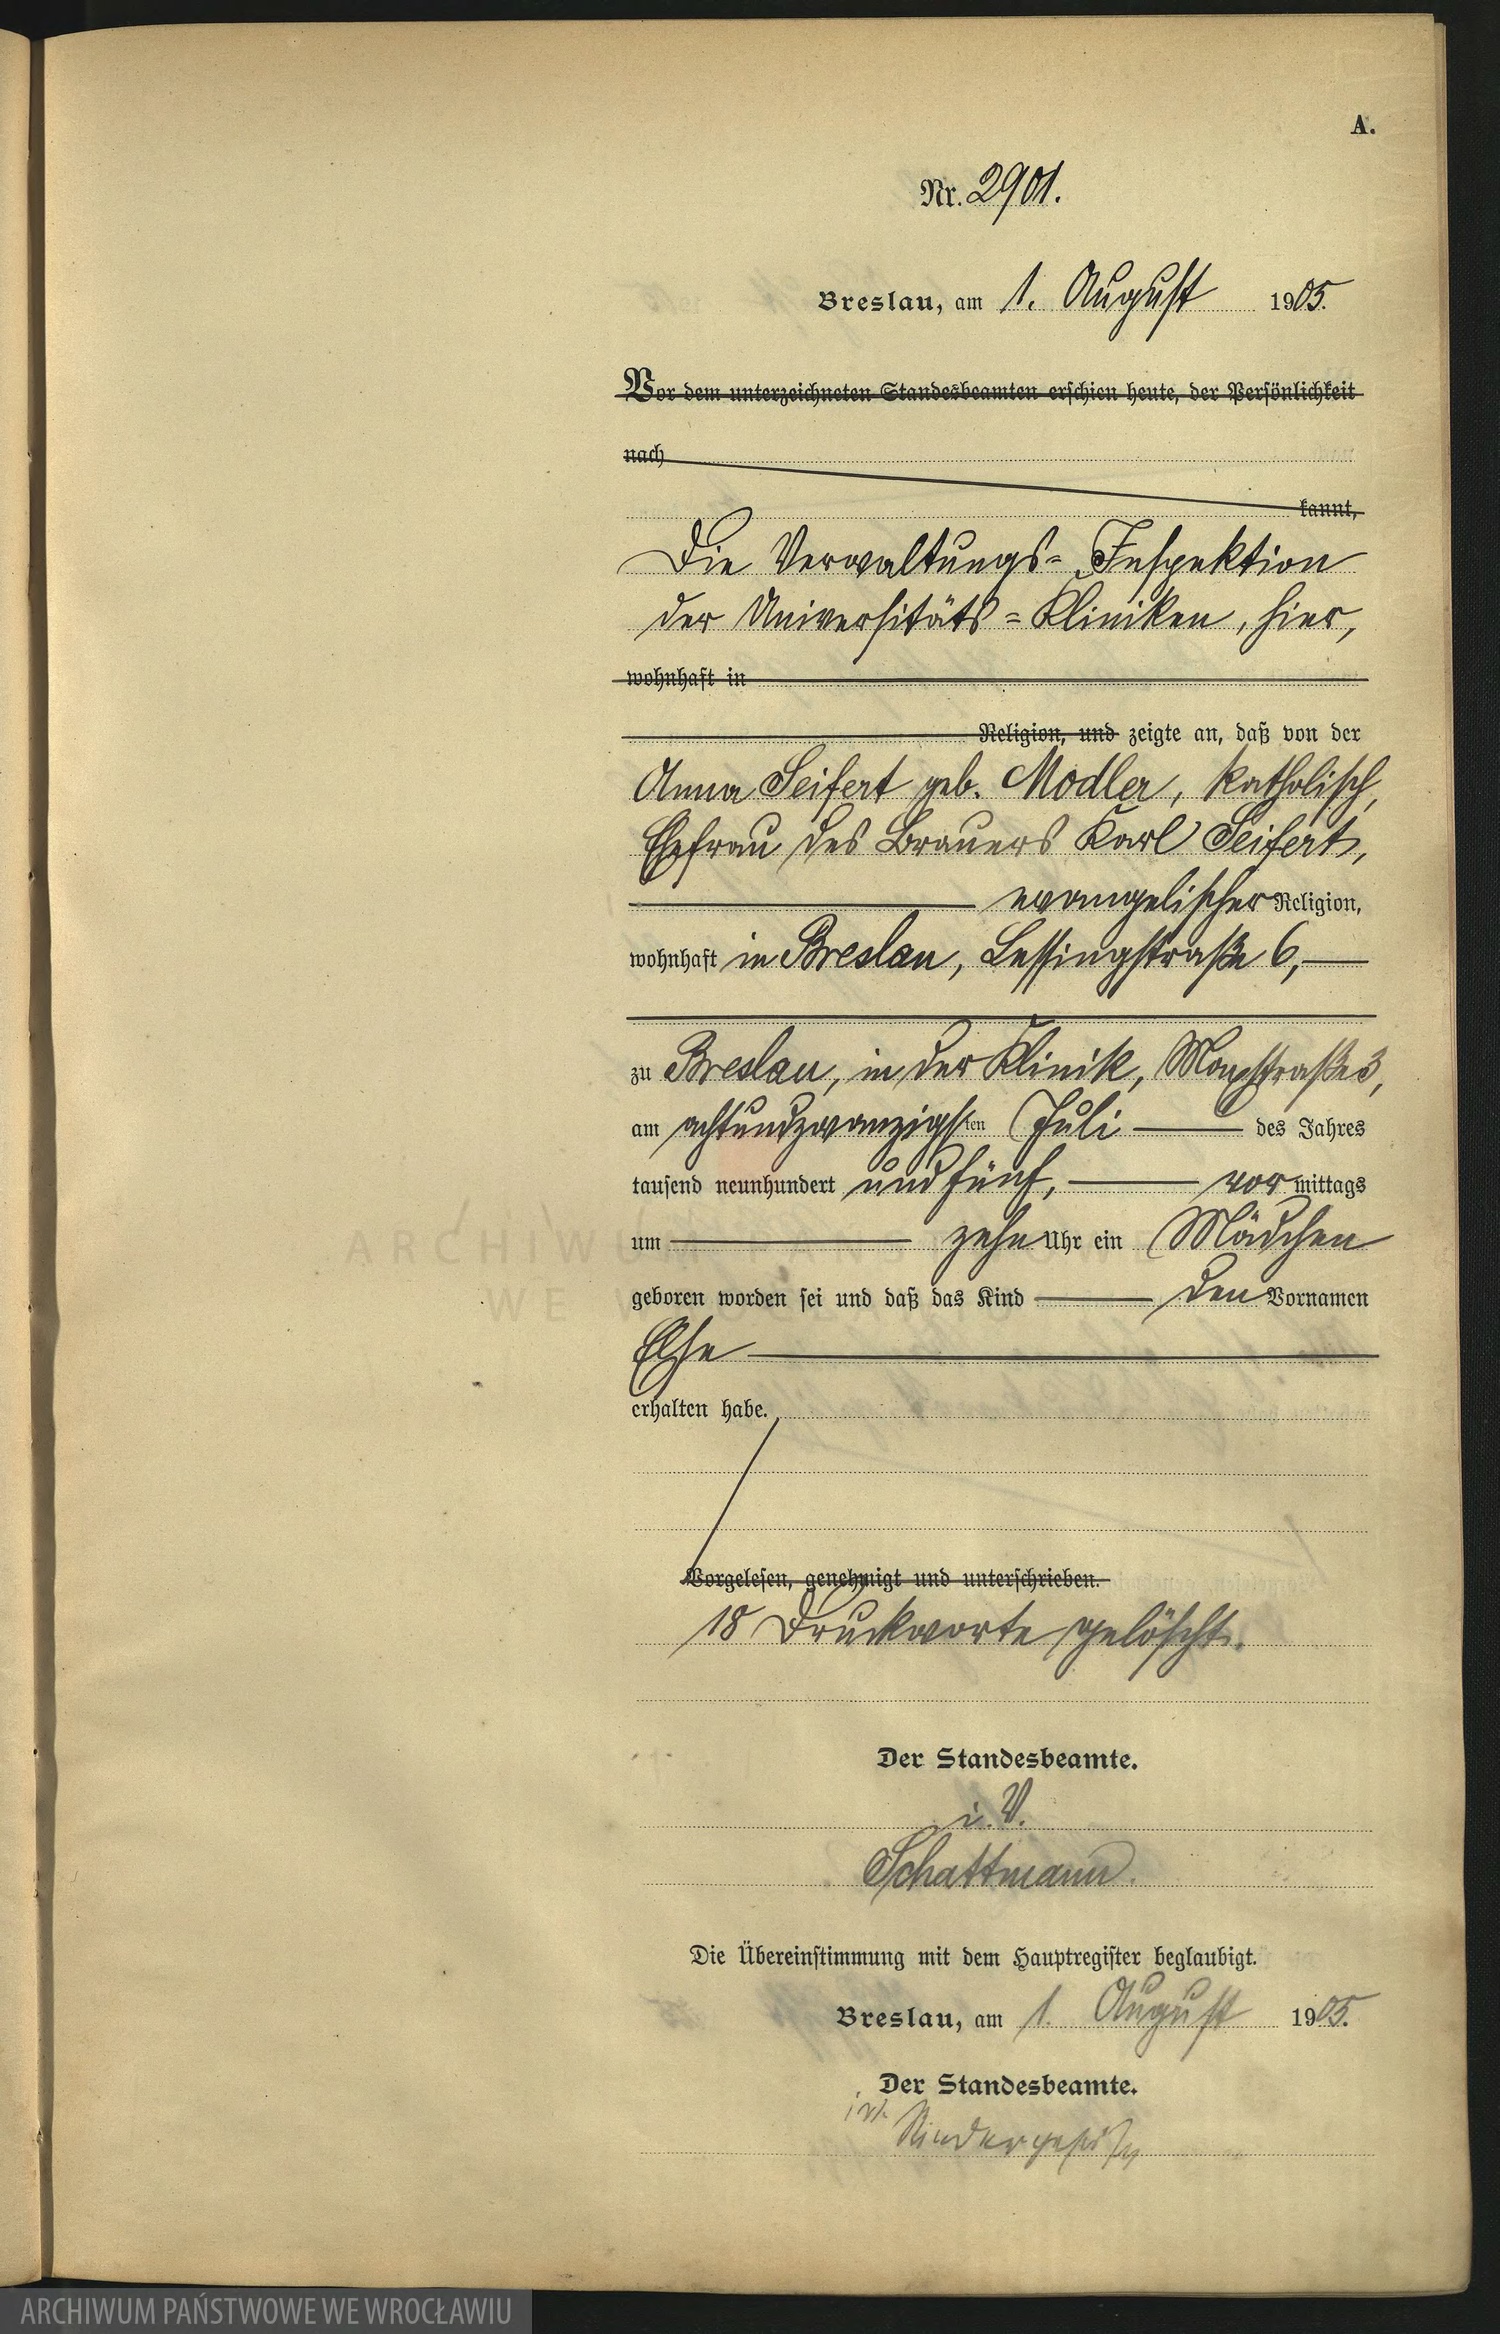 A.
Nr. 2901.
Breslau, am 1. August 1905.
Vor dem unterzeichneten Standesbeamten erschien heute, der Persönlichkeit
nach
kannt,
Die Verwaltungs= Inspektion
der Universitäts=Kliniken, hier,
wohnhaft in
Religion, und zeigte an, daß von der
Anna Seifert geb. Modler, katholisch,
Ehefrau des Brauers Karl Seifert,
evangelischer Religion,
wohnhaft in Breslau, Lessingstraße 6,
zu Breslau, in der Klinik, Maxstraße 3,
am achtundzwanzigsten Juli des Jahres
tausend neunhundert und fünf, vormittags
um zehn Uhr ein Mädchen
geboren worden sei und daß das Kind den Vornamen
Else
erhalten habe.
Vorgelesen, genehmigt und unterschrieben.
18 Druckworte gelöscht.
Der Standesbeamte.
i. V.
Schattmann.
Die Übereinstimmung mit dem Hauptregister beglaubigt.
Breslau, am 1. August 1905.
Der Standesbeamte.
i. V.
ARCHIWUM PAŃSTWOWE
WE WROCŁAWIU
ARCHIWUM PAŃSTWOWE WE WROCŁAWIU